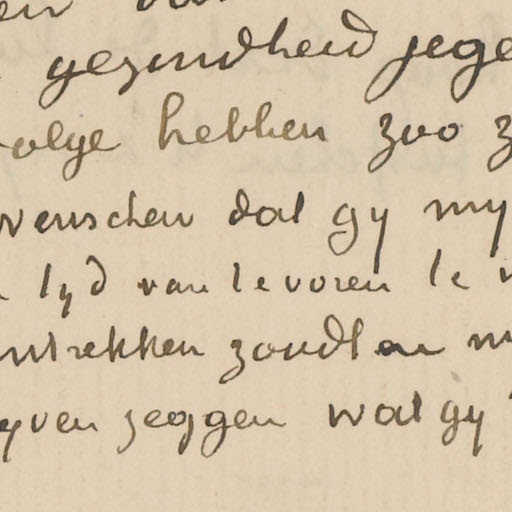 gezondheid jege
olge hebben zoo z
wenschen dat gy my
tyd van te voren te
ntrekken zoudt en m
yven zeggen wat gy